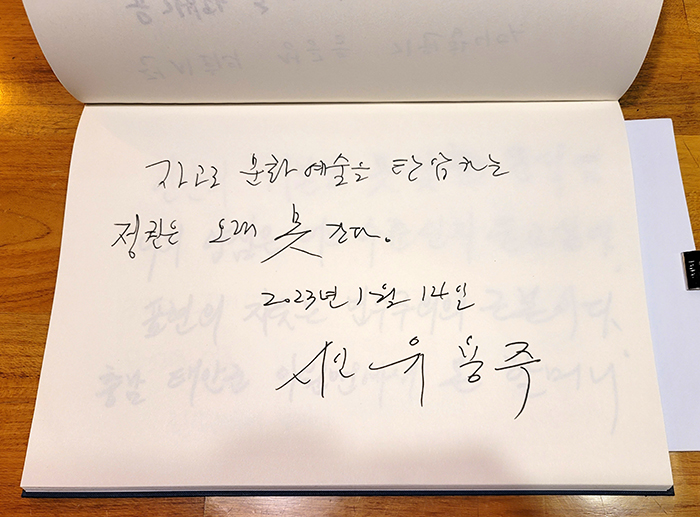 자고로 문화예술을 탄압하는
정권은 오래 못 간다.
2023년 1월 14일
시인 유용주